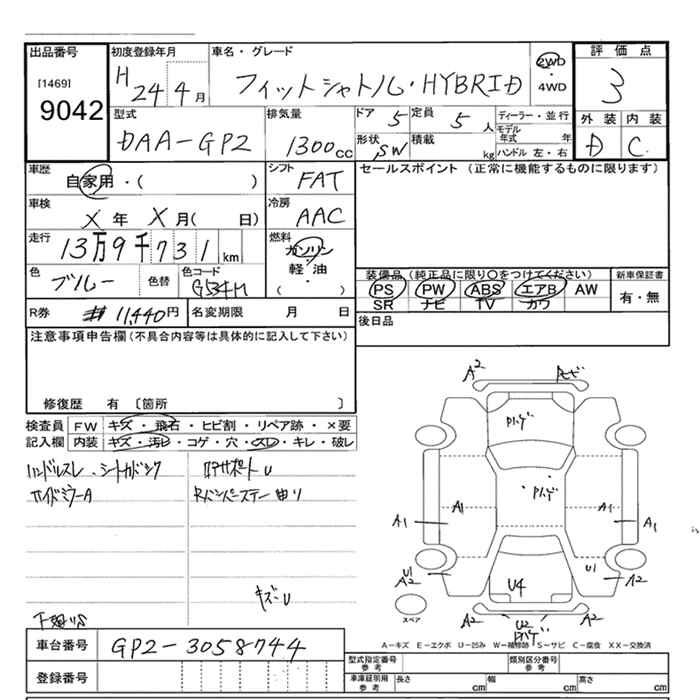 出品番号 初度登録年月 車名・グレード 2WD 評価点
[1469] H 24 4月 フィットシャトル・HYBRID ・ 3
9042 4WD
型式 排気量 ドア 5 定員 5人 ディーラー・並行 外装 内装
DAA-GP2 1300cc 形状 SW 積載 kg モデル年式 年 D C
ハンドル 左・右
車歴 シフト セールスポイント (正常に機能するものに限ります)
自家用・( ) FAT
車検 冷房
X年 X月( 日) AAC
走行 燃料
13万9千731km ガソリン
色 ブルー 色替 色コード G534M 軽・油 装備品(純正品に限り○をつけてください) 新車保証書
( ) PS PW ABS エアB AW 有・無
R券 11,440円 名変期限 月 日 SR ナビ TV カワ
注意事項申告欄(不具合内容等は具体的に記入して下さい) 後日品
修復歴 有 〔箇所 〕
検査員 FW キズ・飛石・ヒビ割・リペア跡・×要
記入欄 内装 キズ・汚レ・コゲ・穴・スレ・キレ・破レ
ハンドルスレ、シートカバシワ
サイドミラーA
キズ・U
A2
A2
A1 A1 A1 A1
U1 A2 U1 A2
U4
A2 U2 A2
スペア
A-キズ E-エクボ U-凹み W-補修跡 S-サビ C-腐食 XX-交換済
車台番号 GP2-3058744
登録番号
型式指定番号 参考 類別区分番号 参考
車庫証明用 参考 長さ cm 幅 cm 高さ cm